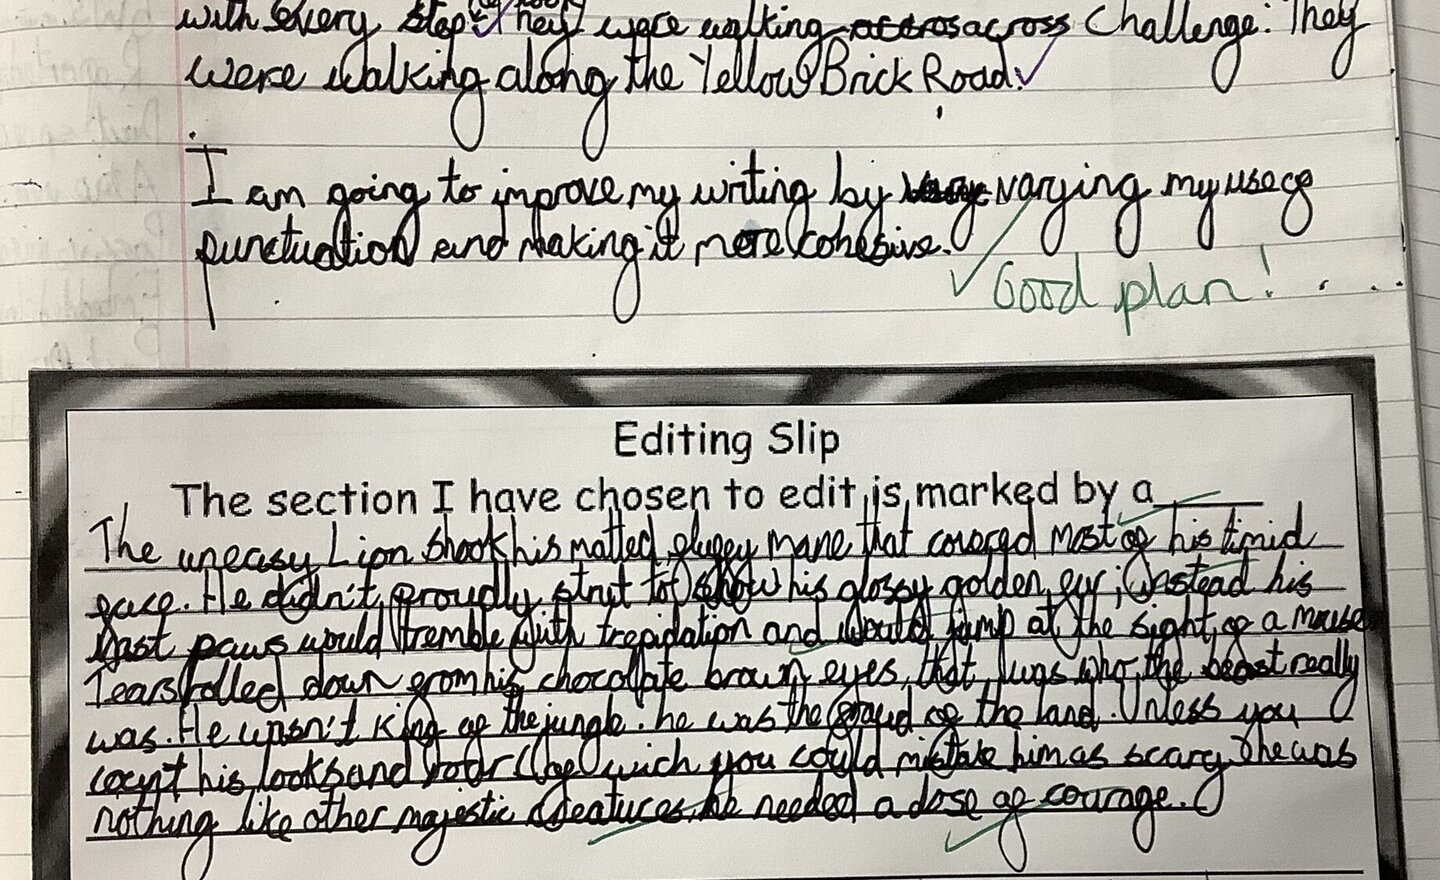 with every step. They were walking across Challenge: They
were walking along the Yellow Brick Road.
I am going to improve my writing by varying my use of
punctuation and making it more cohesive.
Good plan!
Editing Slip
The section I have chosen to edit is marked by a
The uneasy Lion shook his matted, fluffy mane that covered most of his timid
face. He didn't proudly strut to show his glossy golden fur; instead his
vast paws would tremble with trepidation and would jump at the sight of a mouse.
Tears rolled down from his chocolate brown eyes, that was who the beast really
was. He wasn't King of the jungle. he was the fraud of the land. Unless you
count his looks and roar (of wich you could mistake him as scary) he was
nothing like other majestic creatures, he needed a dose of courage.